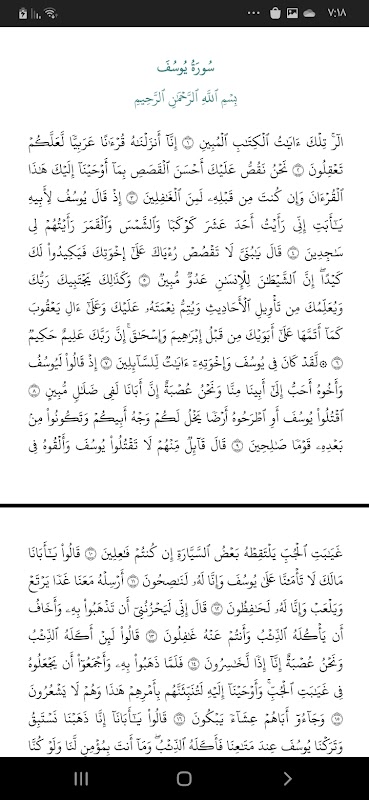 ٧:١٨
سُورَةُ يُوسُفَ
بِسْمِ ٱللَّهِ ٱلرَّحْمَٰنِ ٱلرَّحِيمِ
الٓرۚ تِلْكَ ءَايَٰتُ ٱلْكِتَٰبِ ٱلْمُبِينِ ۝١ إِنَّآ أَنزَلْنَٰهُ قُرْءَٰنًا عَرَبِيًّا لَّعَلَّكُمْ
تَعْقِلُونَ ۝٢ نَحْنُ نَقُصُّ عَلَيْكَ أَحْسَنَ ٱلْقَصَصِ بِمَآ أَوْحَيْنَآ إِلَيْكَ هَٰذَا
ٱلْقُرْءَانَ وَإِن كُنتَ مِن قَبْلِهِۦ لَمِنَ ٱلْغَٰفِلِينَ ۝٣ إِذْ قَالَ يُوسُفُ لِأَبِيهِ
يَٰٓأَبَتِ إِنِّى رَأَيْتُ أَحَدَ عَشَرَ كَوْكَبًا وَٱلشَّمْسَ وَٱلْقَمَرَ رَأَيْتُهُمْ لِى
سَٰجِدِينَ ۝٤ قَالَ يَٰبُنَىَّ لَا تَقْصُصْ رُءْيَاكَ عَلَىٰٓ إِخْوَتِكَ فَيَكِيدُوا۟ لَكَ
كَيْدًاۖ إِنَّ ٱلشَّيْطَٰنَ لِلْإِنسَٰنِ عَدُوٌّ مُّبِينٌ ۝٥ وَكَذَٰلِكَ يَجْتَبِيكَ رَبُّكَ
وَيُعَلِّمُكَ مِن تَأْوِيلِ ٱلْأَحَادِيثِ وَيُتِمُّ نِعْمَتَهُۥ عَلَيْكَ وَعَلَىٰٓ ءَالِ يَعْقُوبَ
كَمَآ أَتَمَّهَا عَلَىٰٓ أَبَوَيْكَ مِن قَبْلُ إِبْرَٰهِيمَ وَإِسْحَٰقَۚ إِنَّ رَبَّكَ عَلِيمٌ حَكِيمٌ
۝٦ ۞ لَّقَدْ كَانَ فِى يُوسُفَ وَإِخْوَتِهِۦٓ ءَايَٰتٌ لِّلسَّآئِلِينَ ۝٧ إِذْ قَالُوا۟ لَيُوسُفُ
وَأَخُوهُ أَحَبُّ إِلَىٰٓ أَبِينَا مِنَّا وَنَحْنُ عُصْبَةٌ إِنَّ أَبَانَا لَفِى ضَلَٰلٍ مُّبِينٍ ۝٨
ٱقْتُلُوا۟ يُوسُفَ أَوِ ٱطْرَحُوهُ أَرْضًا يَخْلُ لَكُمْ وَجْهُ أَبِيكُمْ وَتَكُونُوا۟ مِنۢ
بَعْدِهِۦ قَوْمًا صَٰلِحِينَ ۝٩ قَالَ قَآئِلٌ مِّنْهُمْ لَا تَقْتُلُوا۟ يُوسُفَ وَأَلْقُوهُ فِى
غَيَٰبَتِ ٱلْجُبِّ يَلْتَقِطْهُ بَعْضُ ٱلسَّيَّارَةِ إِن كُنتُمْ فَٰعِلِينَ ۝١٠ قَالُوا۟ يَٰٓأَبَانَا
مَالَكَ لَا تَأْمَ۫نَّا عَلَىٰ يُوسُفَ وَإِنَّا لَهُۥ لَنَٰصِحُونَ ۝١١ أَرْسِلْهُ مَعَنَا غَدًا يَرْتَعْ
وَيَلْعَبْ وَإِنَّا لَهُۥ لَحَٰفِظُونَ ۝١٢ قَالَ إِنِّى لَيَحْزُنُنِىٓ أَن تَذْهَبُوا۟ بِهِۦ وَأَخَافُ
أَن يَأْكُلَهُ ٱلذِّئْبُ وَأَنتُمْ عَنْهُ غَٰفِلُونَ ۝١٣ قَالُوا۟ لَئِنْ أَكَلَهُ ٱلذِّئْبُ
وَنَحْنُ عُصْبَةٌ إِنَّآ إِذًا لَّخَٰسِرُونَ ۝١٤ فَلَمَّا ذَهَبُوا۟ بِهِۦ وَأَجْمَعُوٓا۟ أَن يَجْعَلُوهُ
فِى غَيَٰبَتِ ٱلْجُبِّۚ وَأَوْحَيْنَآ إِلَيْهِ لَتُنَبِّئَنَّهُم بِأَمْرِهِمْ هَٰذَا وَهُمْ لَا يَشْعُرُونَ
۝١٥ وَجَآءُوٓ أَبَاهُمْ عِشَآءً يَبْكُونَ ۝١٦ قَالُوا۟ يَٰٓأَبَانَآ إِنَّا ذَهَبْنَا نَسْتَبِقُ
وَتَرَكْنَا يُوسُفَ عِندَ مَتَٰعِنَا فَأَكَلَهُ ٱلذِّئْبُۖ وَمَآ أَنتَ بِمُؤْمِنٍ لَّنَا وَلَوْ كُنَّا